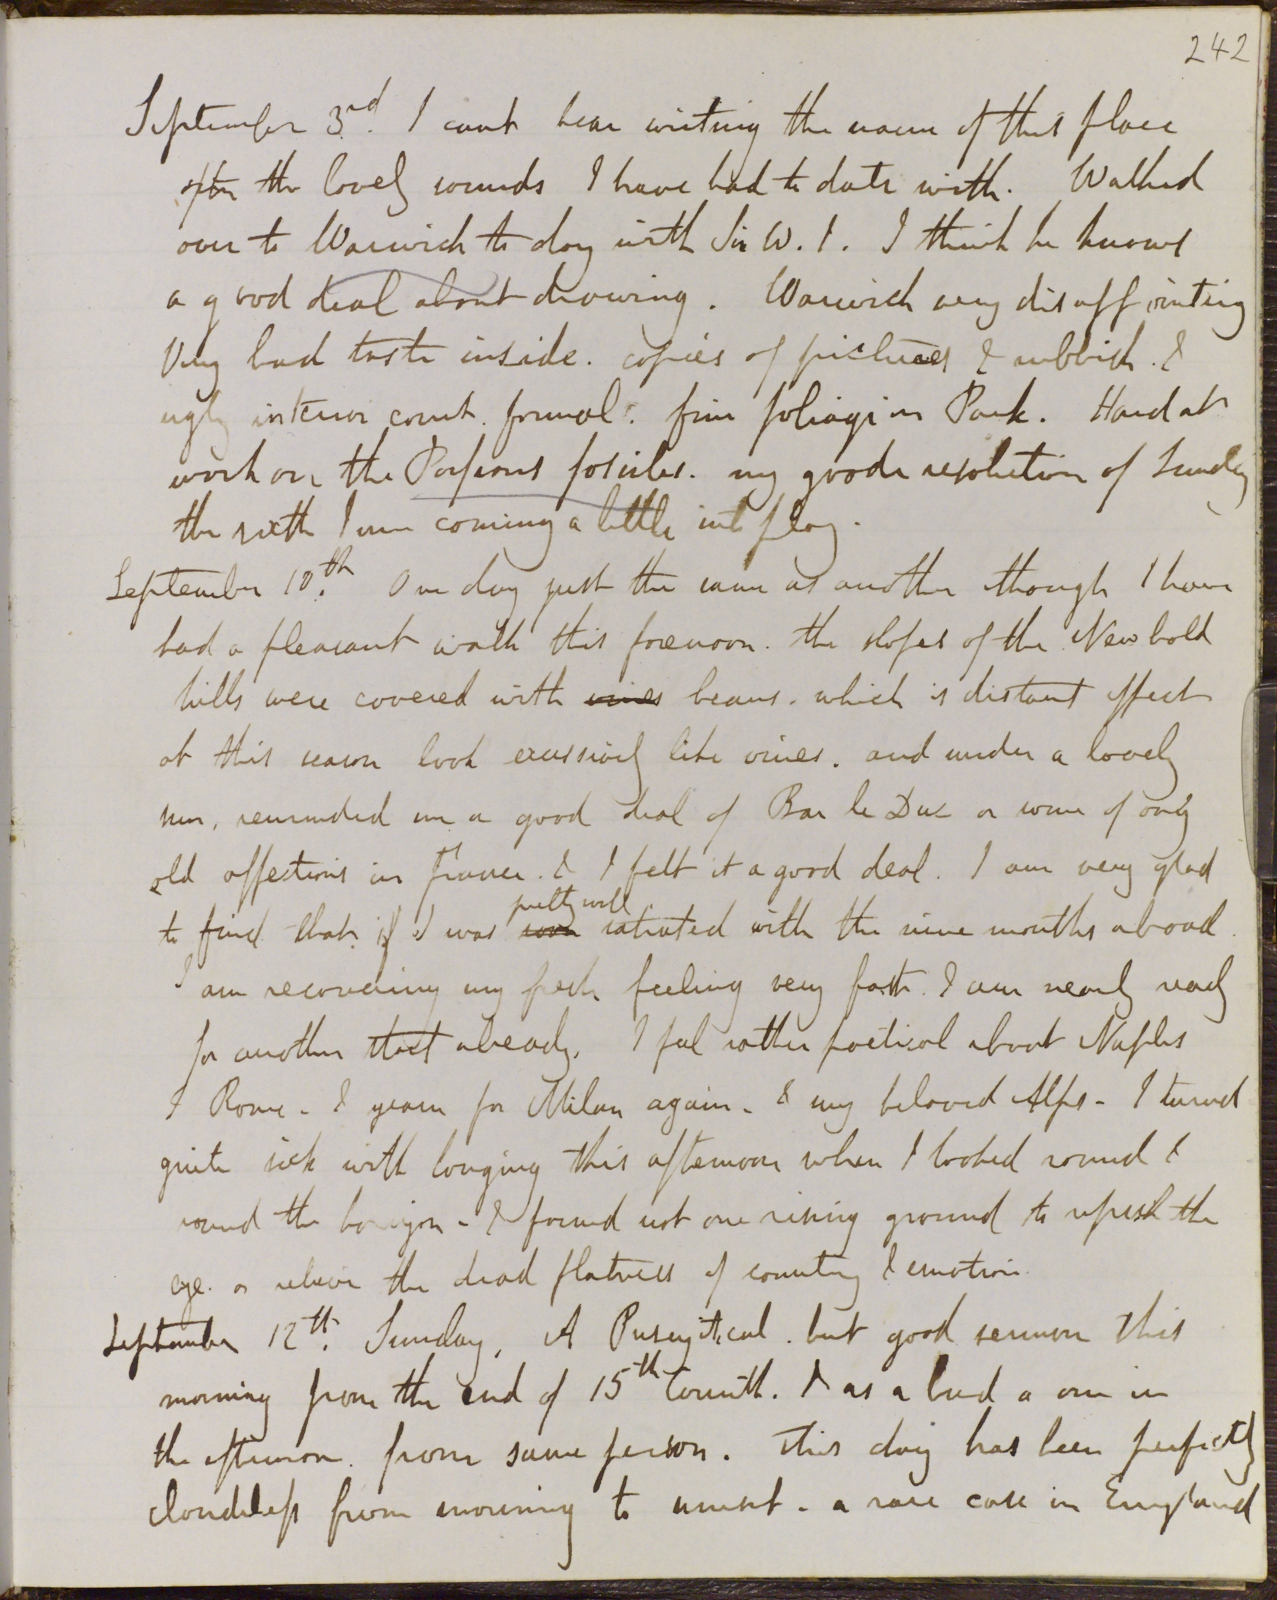 242
September 3rd. I cant bear writing the name of this place
after the lovely sounds I have had to date with. Walked
over to Warwick to day with Sir W. I. I think he knows
a good deal about drawing. Warwick very disappointing
Very bad taste inside. copies of pictures & rubbish. &
ugly interior court. formal. fine foliage in Park. Hard at
work on the fossiles. my good resolution of Sunday
the sixth I am coming a little int play.
September 10th. One day just the same as another though I have
had a pleasant walk this forenoon. the slopes of the Newbold
hills were covered with vines beans. which is distant effect
at this season look excessively like vines. and under a lovely
sun, reminded me a good deal of Bar le Duc or some of my
old affections in France. & I felt it a good deal. I am very glad
to find that if I was soon pretty well satiated with the nine months abroad.
I am recovering my fresh feeling very fast. I am nearly ready
for another start already. I feel rather poetical about Naples
& Rome - & yearn for Milan again - & my beloved Alps - I turned
quite sick with longing this afternoon when I looked round &
round the horizon - & found not one rising ground to refresh the
eye. or relieve the dead flatness of country & emotion.
September 12th. Sunday, A Puseyitical. but good sermon this
morning from the end of 15th Corinth. & as a bad a one in
the afternoon. from same person. This day has been perfectly
cloudless from morning to sunset - a rare case in England